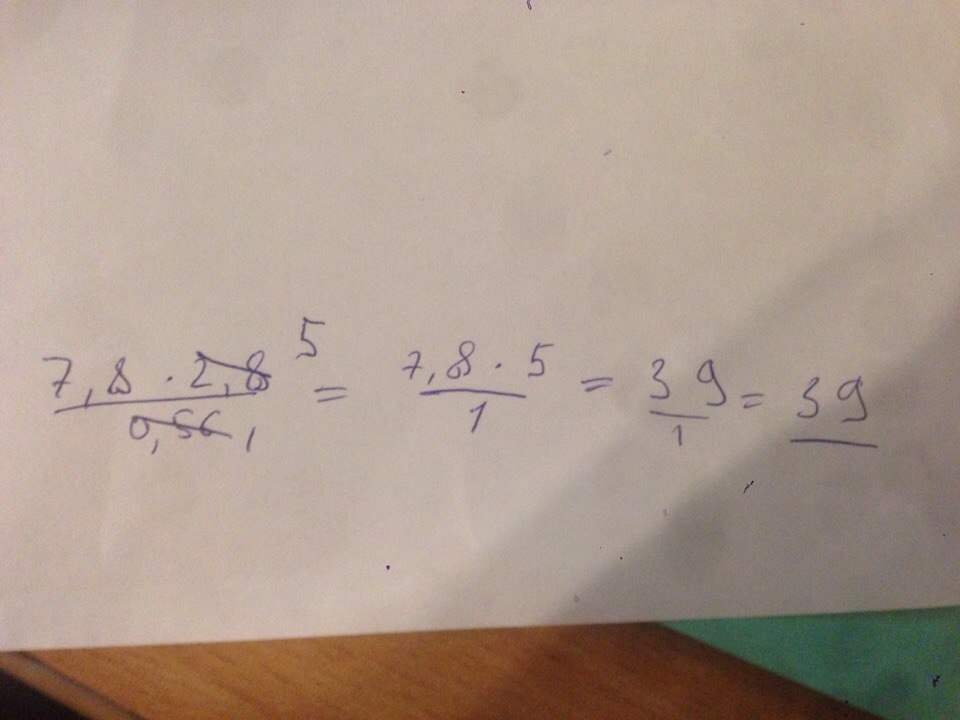 7,8 · 2,8 5 / 0,56 1 = 7,8 · 5 / 1 = 39 / 1 = 39